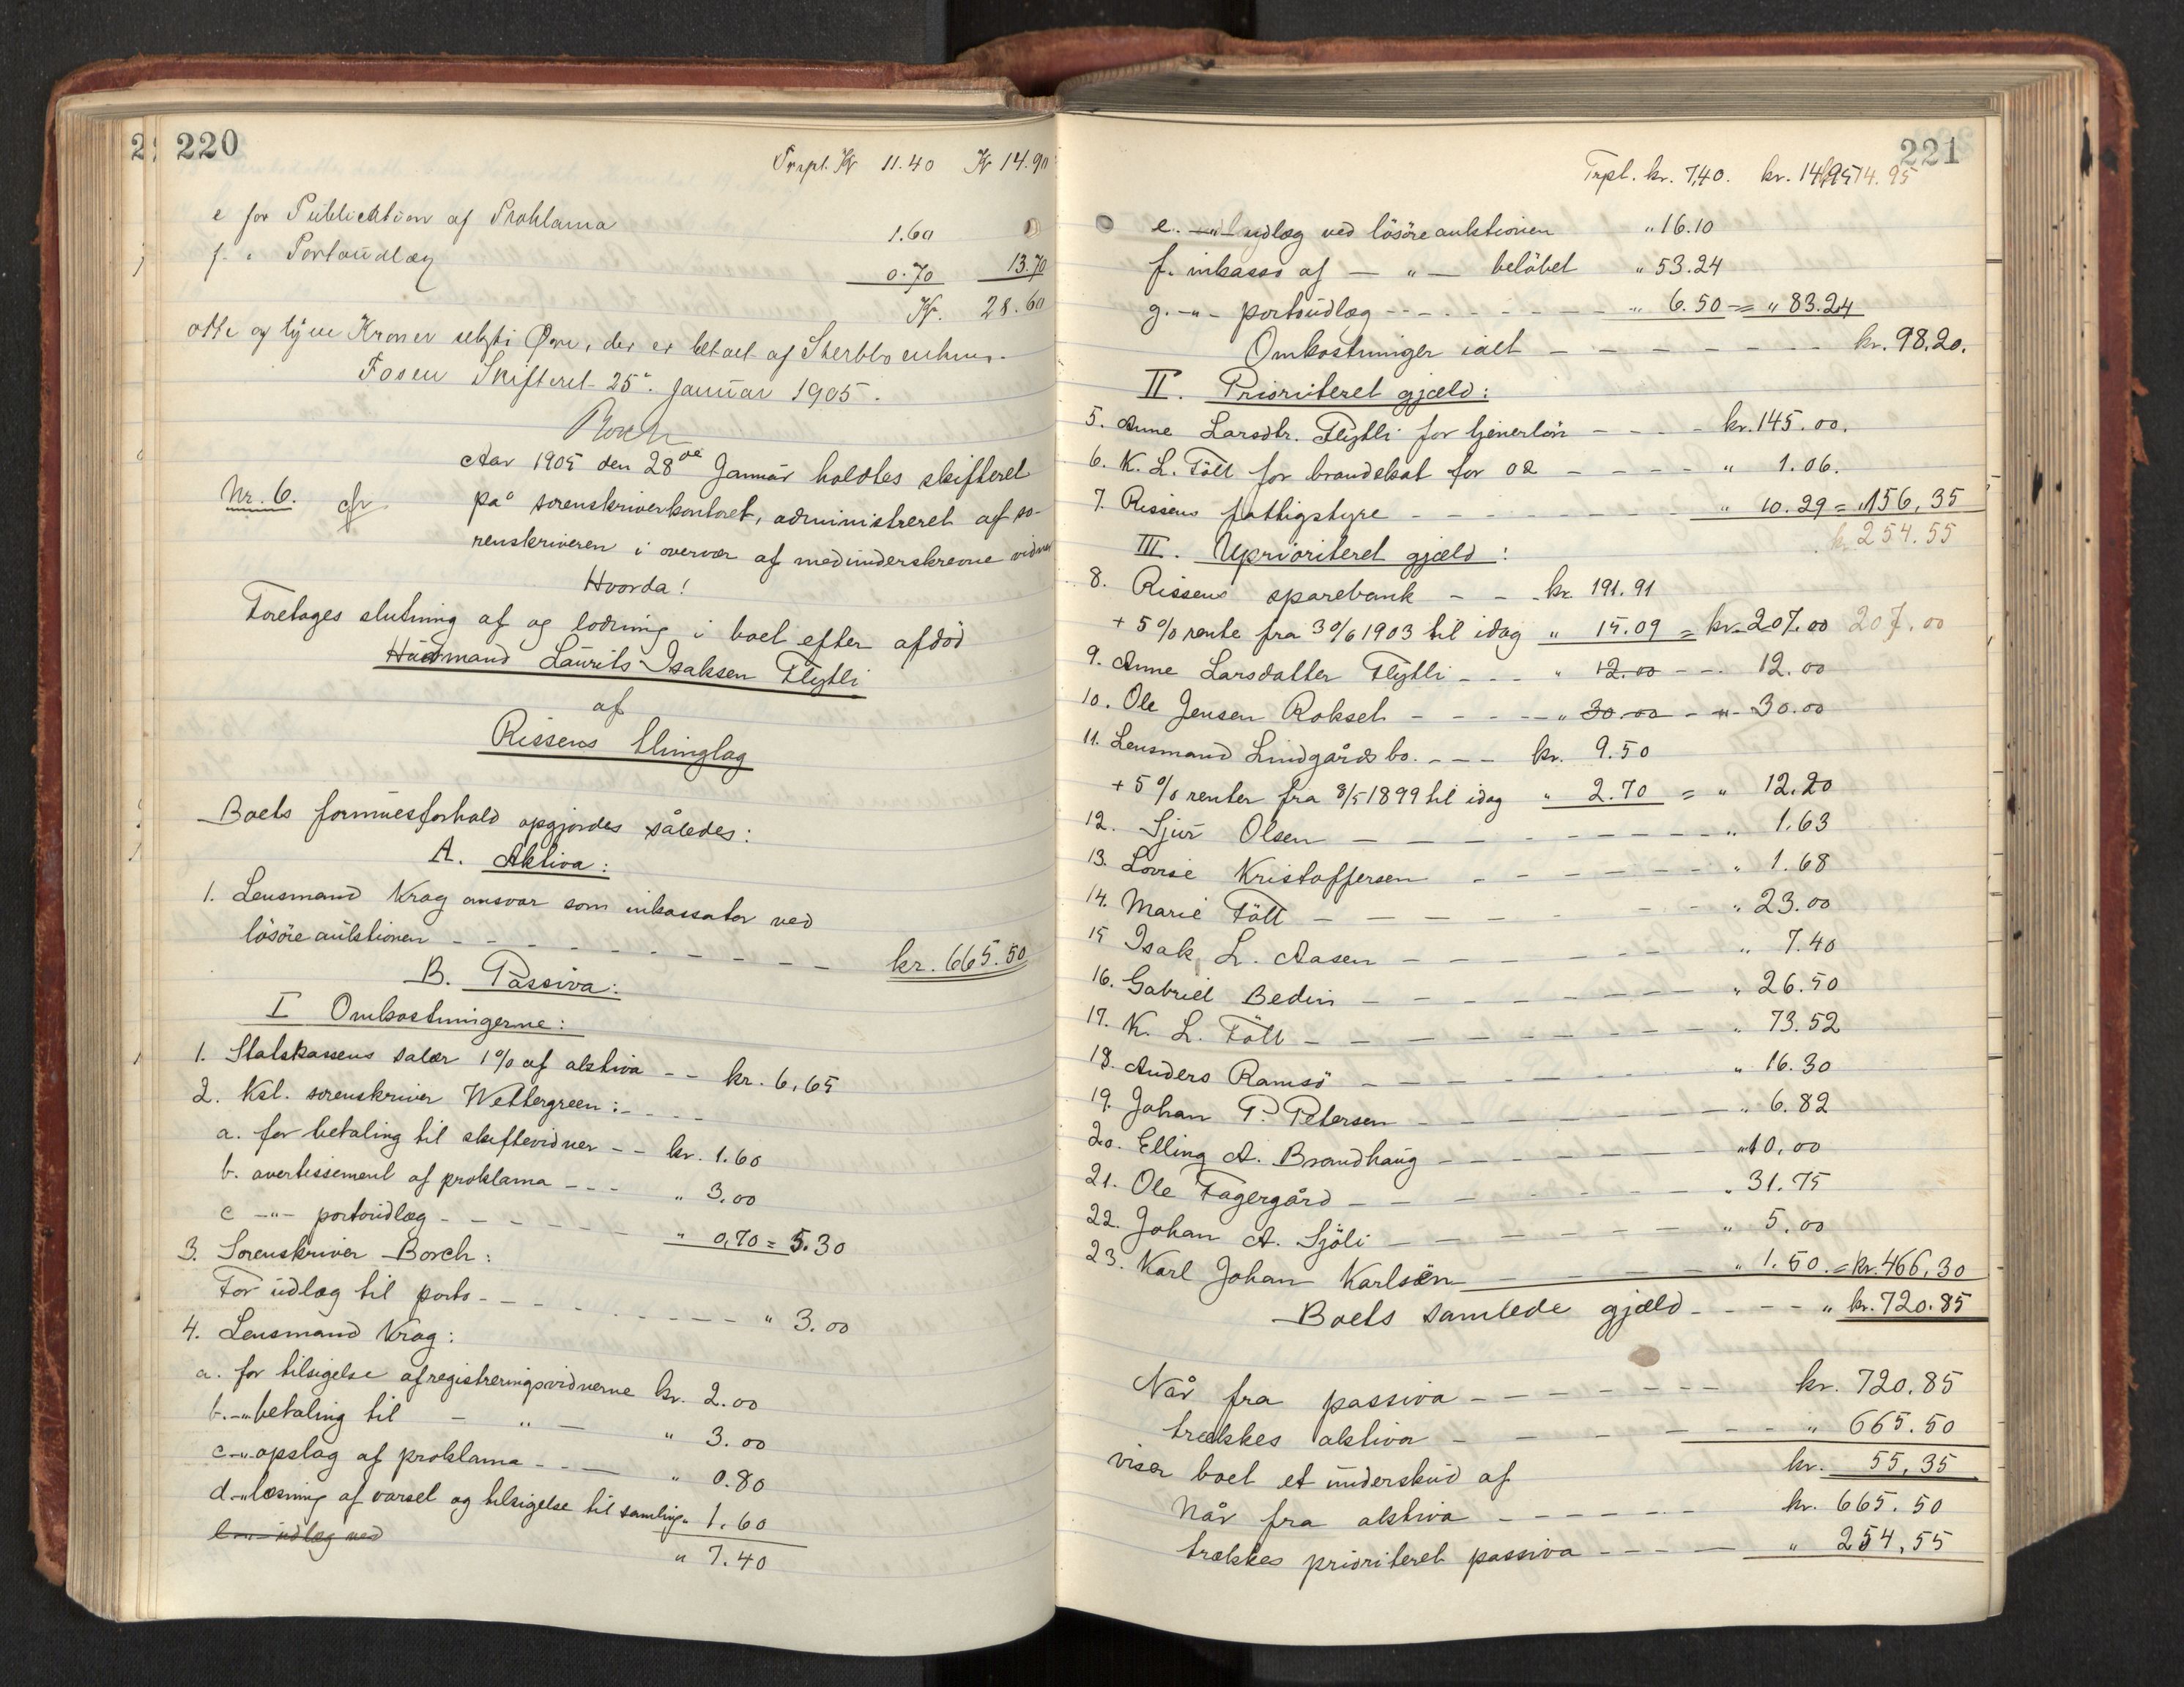 220
Trspt. Kr 11.40 Kr 14.90
e for Publication af Proklama 1.60
f. " Portoudlæg 0.70 13.70
Kr. 28.60
otte og tyve Kroner seksti Øre, der er betalt af Sterbboenken.
Fosen Skifteret 25de Januar 1905.
Borch
Nr. 6. cfr
Aar 1905 den 28de Januar holdtes skifteret
på sorenskriverkontoret, administreret af so-
renskriveren i overvær af medunderskrevne vidner
Hvorda!
Foretoges slutning af og lodning i boet efter afdöd
Husmand Laurits Isaksen Flytli
af
Rissens thinglag
Boets formuesforhold opgjordes således:
A. Aktiva:
1. Lensmand Krag ansvar som inkassator ved
lösöreauktionen - - - - - - - - kr. 665.50
B. Passiva:
I Omkostningerne:
1. Statskassens salær 1% af aktiva - - kr. 6,65
2. Kst. sorenskriver Wettergreen: - - - -
a. for betaling til skiftevidner - - kr. 1.60
b. avertissement af proklama - - - " 3.00
c -"- portoudlæg - - - - - - " 0,70 = 5.30
3. Sorenskriver Borch:
For udlæg til porto - - - - - - - - - " 3.00
4. Lensmand Krag:
a. for tilsigelse af registreringsvidnerne kr. 2.00
b. -"- betaling til - " - " 3.00
c -"- opslag af proklama - - - " 0.80
d -"- læsning af varsel og tilsigelse til samling " 1.60
e -"- udlæg ved
" 7.40
221
Trpt. kr. 7,40. kr. 14.95 14.95
e. -"- udlæg ved lösöreauktionen " 16.10
f. inkasso af - " - belöbet " 53.24
g. -"- portoudlæg - - - - - - - " 6.50 = " 83.24
Omkostninger ialt - - - - - - - kr. 98.20.
II. Prioriteret gjæld:
5. Anne Larsdtr. Flytli for tjenerlön - - - - kr. 145.00.
6. K. L. Fött for brandskat for 02 - - - - " 1.06.
7. Rissens fattigstyre - - - - - - - " 10.29 = " 156,35
kr 254.55
III. Uprioriteret gjæld:
8. Rissens sparebank - - - kr. 191.91
+ 5% rente fra 30/6 1903 til idag " 15.09 = kr. 207.00 207.00
9. Anne Larsdatter Flytli - - - " 12.00 - - - 12.00
10. Ole Jensen Rokset - - - - - " 30.00 - " - 30.00
11. Lensmand Lindgårds bo. - - - kr. 9.50
+ 5% renter fra 8/5 1899 til idag " 2.70 = " 12.20
12. Sjur Olsen - - - - - - - - - " 1.63
13. Lovise Kristoffersen - - - - - - - " 1.68
14. Marie Fött - - - - - - - - " 23.00
15 Isak L. Aasen - - - - - - - " 7.40
16. Gabriel Bedin - - - - - - - - " 26.50
17. K. L. Fött - - - - - - - - - " 73.52
18. Anders Ramsö - - - - - - - " 16.30
19. Johan P. Petersen - - - - - - - " 6.82
20. Elling A. Brandhaug - - - - - - - " 10,00
21. Ole Fagergård - - - - - - - " 31.75
22. Johan A. Sjöli - - - - - - - " 5.00
23. Karl Johan Karlsen - - - - - " 1.50. = kr. 466,30
Boets samlede gjæld - - - - " kr. 720.85
Når fra passiva - - - - - - - kr. 720.85
trækkes aktiva - - - - - - - " 665.50
viser boet et underskud af kr. 55,35
Når fra aktiva - - - - - - kr. 665.50
trækkes prioriteret passiva - - - - " 254,55